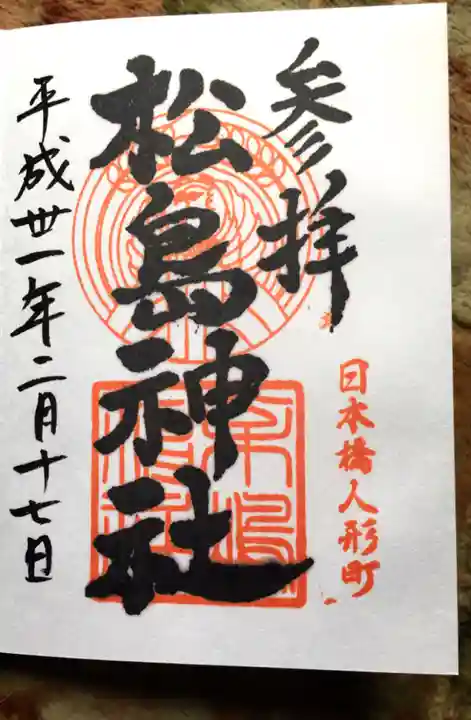 参拝
日本橋人形町
松島神社
平成卅一年二月十七日